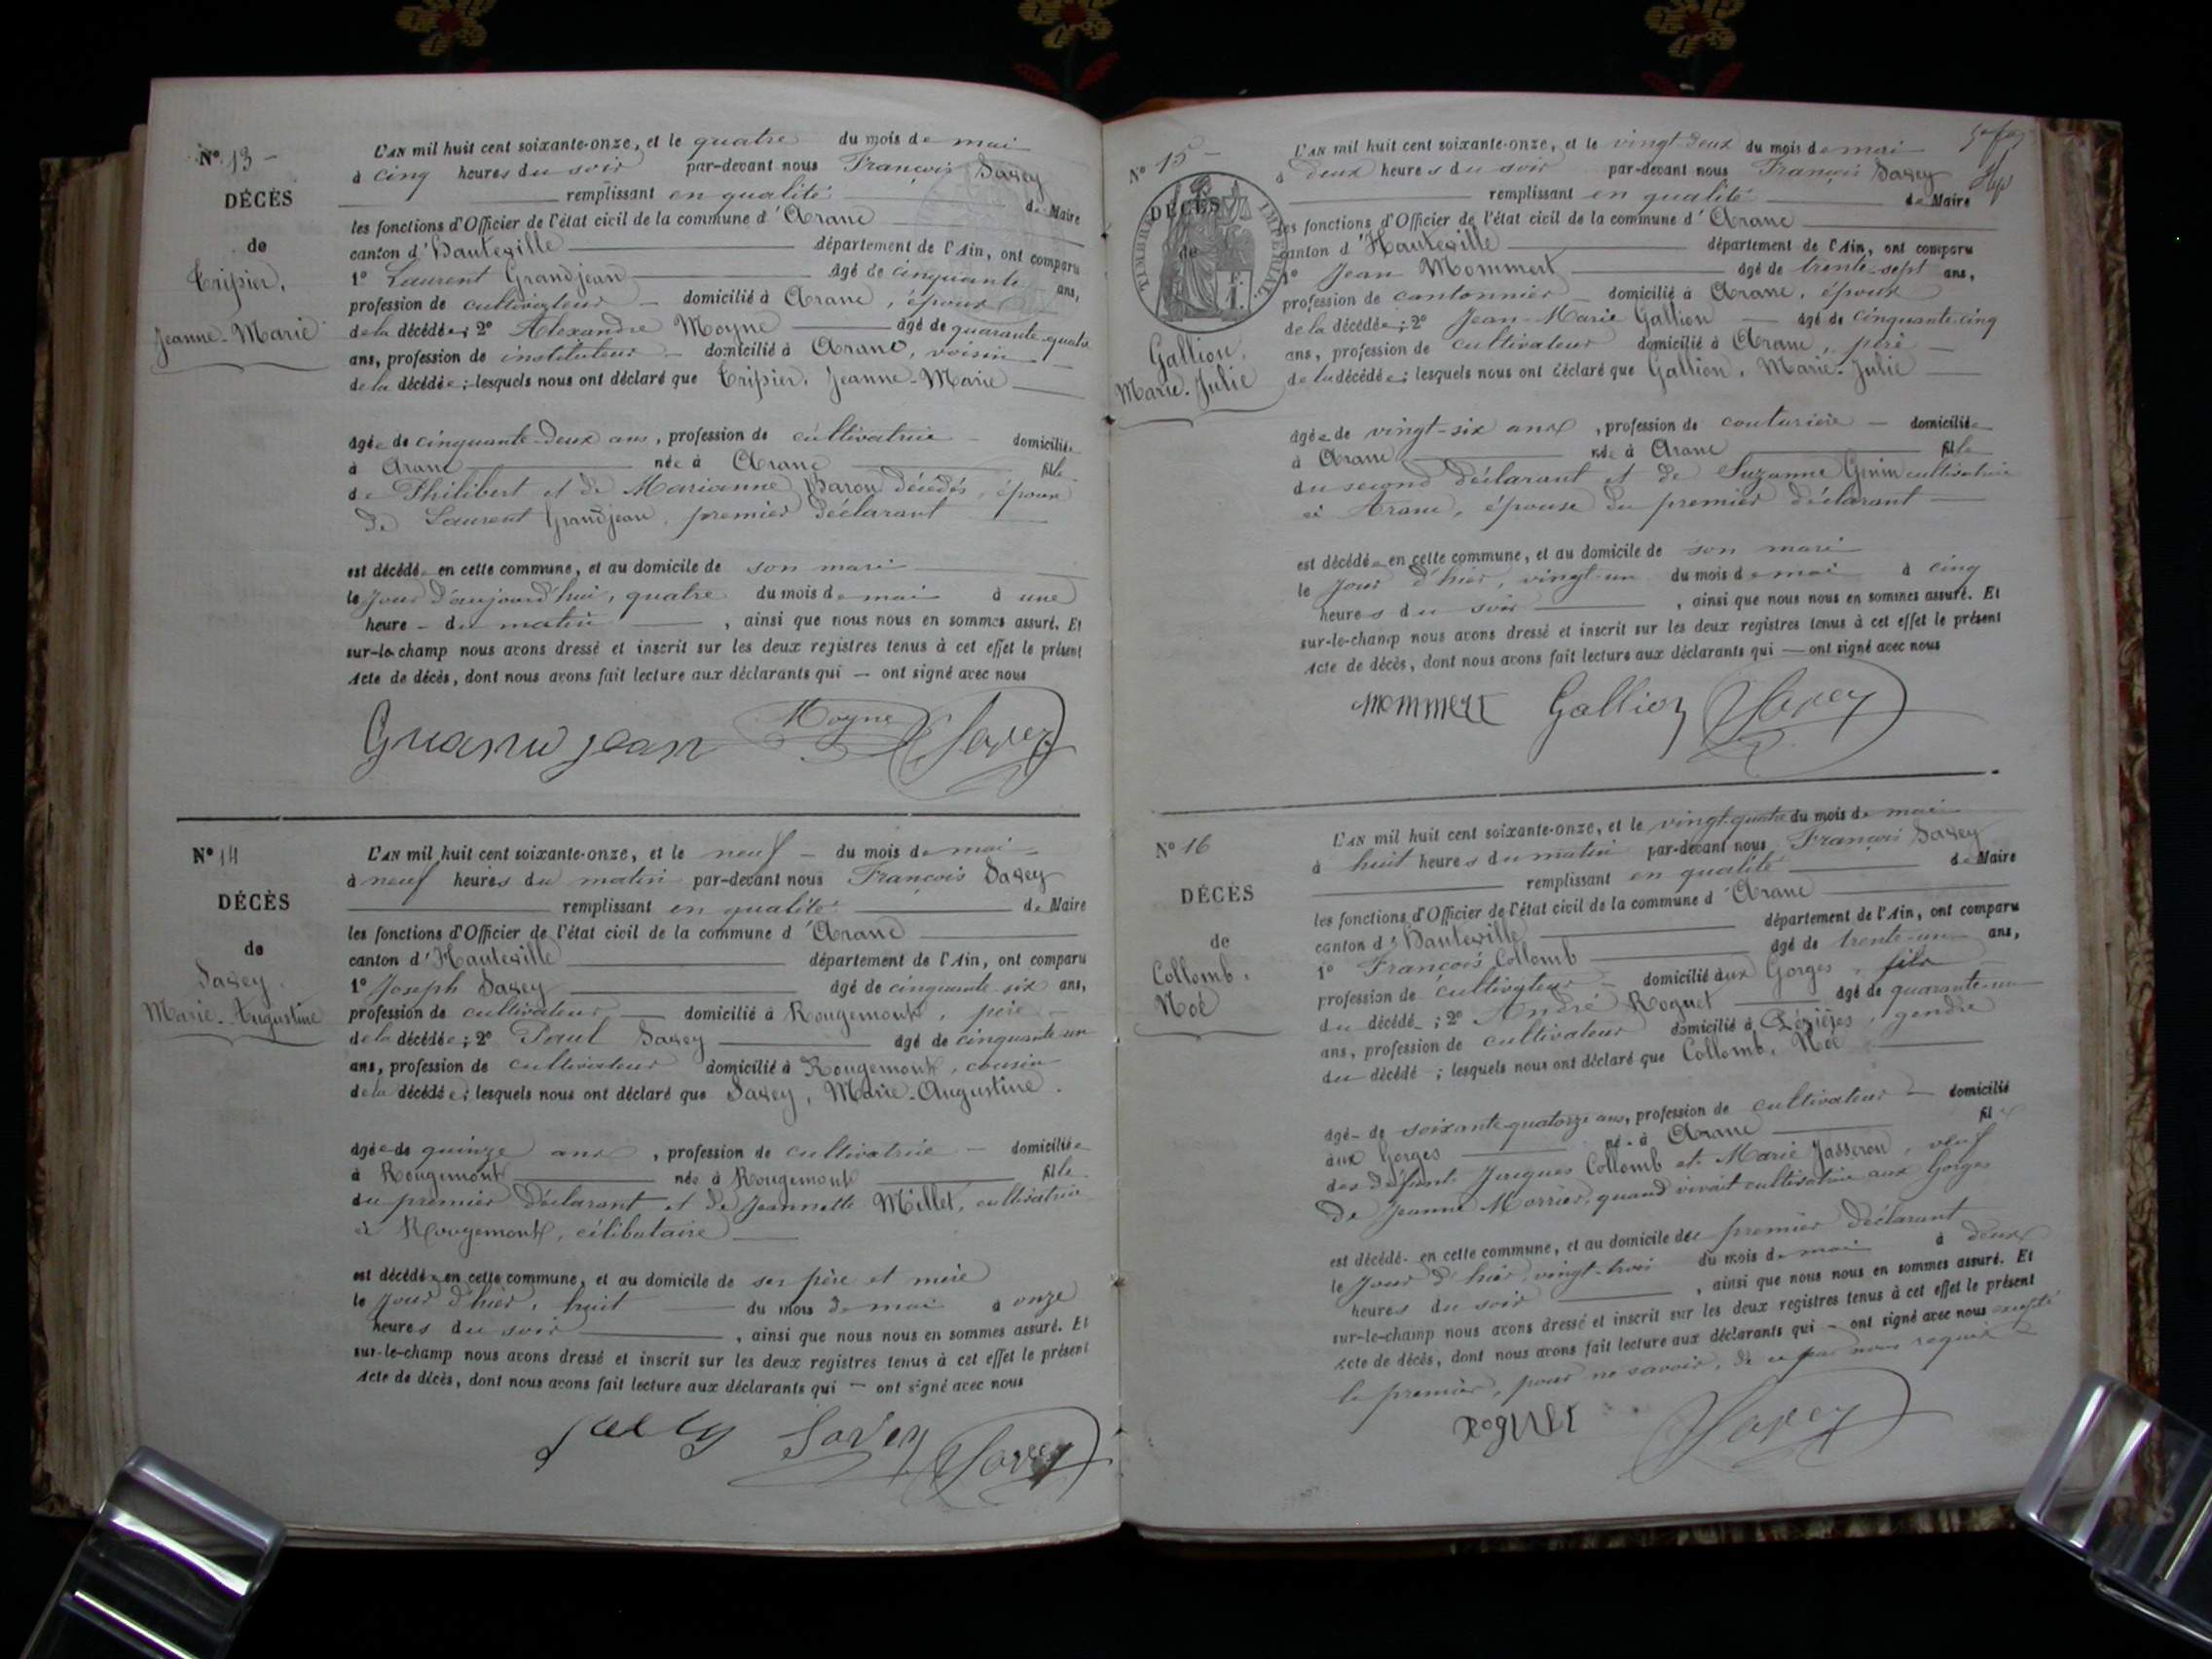 N° 13 -
DÉCÈS
de
Tripier,
Jeanne-Marie
L'AN mil huit cent soixante-onze, et le quatre du mois de mai
à cinq heures du soir par-devant nous François Savey
remplissant en qualité de Maire
les fonctions d'Officier de l'état civil de la commune d'Aranc
canton d'Hauteville département de l'Ain, ont comparu
1° Laurent Grandjean âgé de cinquante ans,
profession de cultivateur domicilié à Aranc, époux
de la décédée; 2° Alexandre Moyne âgé de quarante-quatre
ans, profession de instituteur domicilié à Aranc, voisin
de la décédée; lesquels nous ont déclaré que Tripier, Jeanne-Marie
âgée de cinquante-deux ans, profession de cultivatrice domiciliée
à Aranc née à Aranc fille
de Philibert et de Marianne Baron décédés, épouse
de Laurent Grandjean, premier déclarant
est décédée en cette commune, et au domicile de son mari
le jour d'aujourd'hui, quatre du mois de mai à une
heure - du matin, ainsi que nous nous en sommes assuré. Et
sur-le-champ nous avons dressé et inscrit sur les deux registres tenus à cet effet le présent
Acte de décès, dont nous avons fait lecture aux déclarants qui — ont signé avec nous
Grandjean Moyne Savey
N° 14
DÉCÈS
de
Savey,
Marie-Augustine
L'AN mil huit cent soixante-onze, et le neuf - du mois de mai
à neuf heures du matin par-devant nous François Savey
remplissant en qualité de Maire
les fonctions d'Officier de l'état civil de la commune d'Aranc
canton d'Hauteville département de l'Ain, ont comparu
1° Joseph Savey âgé de cinquante-six ans,
profession de cultivateur domicilié à Rougemont, père
de la décédée; 2° Paul Savey âgé de cinquante-un
ans, profession de cultivateur domicilié à Rougemont, cousin
de la décédée; lesquels nous ont déclaré que Savey, Marie-Augustine.
âgée de quinze ans, profession de cultivatrice - domiciliée
à Rougemont née à Rougemont fille
du premier déclarant et de Jeannette Millet, cultivatrice
à Rougemont, célibataire
est décédée en cette commune, et au domicile de ses père et mère
le jour d'hier, huit du mois de mai à onze
heures du soir, ainsi que nous nous en sommes assuré. Et
sur-le-champ nous avons dressé et inscrit sur les deux registres tenus à cet effet le présent
Acte de décès, dont nous avons fait lecture aux déclarants qui — ont signé avec nous
Savey Savey Savey
N° 15 -
DÉCÈS
de
TIMBRE IMPÉRIAL
Gallion,
Marie-Julie
L'AN mil huit cent soixante-onze, et le vingt-deux du mois de mai
à deux heures du soir par-devant nous François Savey
remplissant en qualité de Maire
les fonctions d'Officier de l'état civil de la commune d'Aranc
canton d'Hauteville département de l'Ain, ont comparu
1° Jean Mommert âgé de trente-sept ans,
profession de cantonnier domicilié à Aranc, époux
de la décédée; 2° Jean-Marie Gallion âgé de cinquante-cinq
ans, profession de cultivateur domicilié à Aranc, père
de la décédée; lesquels nous ont déclaré que Gallion, Marie-Julie
âgée de vingt-six ans, profession de couturière - domiciliée
à Aranc née à Aranc fille
du second déclarant et de Suzanne Genin cultivatrice
à Aranc, épouse du premier déclarant
est décédée en cette commune, et au domicile de son mari
le jour d'hier, vingt-un du mois de mai à cinq
heures du soir, ainsi que nous nous en sommes assuré. Et
sur-le-champ nous avons dressé et inscrit sur les deux registres tenus à cet effet le présent
Acte de décès, dont nous avons fait lecture aux déclarants qui — ont signé avec nous
Mommert Gallion Savey
N° 16
DÉCÈS
de
Collomb,
Noë
L'AN mil huit cent soixante-onze, et le vingt-quatre du mois de mai
à huit heures du matin par-devant nous François Savey
remplissant en qualité de Maire
les fonctions d'Officier de l'état civil de la commune d'Aranc
canton d'Hauteville département de l'Ain, ont comparu
1° François Collomb âgé de trente-un ans,
profession de cultivateur - domicilié aux Gorges, fils
du décédé; 2° André Roguet âgé de quarante-un
ans, profession de cultivateur domicilié à, gendre
du décédé; lesquels nous ont déclaré que Collomb, Noë
âgé de soixante-quatorze ans, profession de cultivateur - domicilié
aux Gorges né à Aranc fils
des défunts Jacques Collomb et Marie Jasseron, veuf
de Jeanne Morrier, quand vivait cultivatrice aux Gorges
est décédé en cette commune, et au domicile du premier déclarant
le jour d'hier vingt-trois du mois de mai à deux
heures du soir, ainsi que nous nous en sommes assuré. Et
sur-le-champ nous avons dressé et inscrit sur les deux registres tenus à cet effet le présent
Acte de décès, dont nous avons fait lecture aux déclarants qui - ont signé avec nous excepté
le premier, pour ne savoir, de ce par nous requis
Roguet Savey